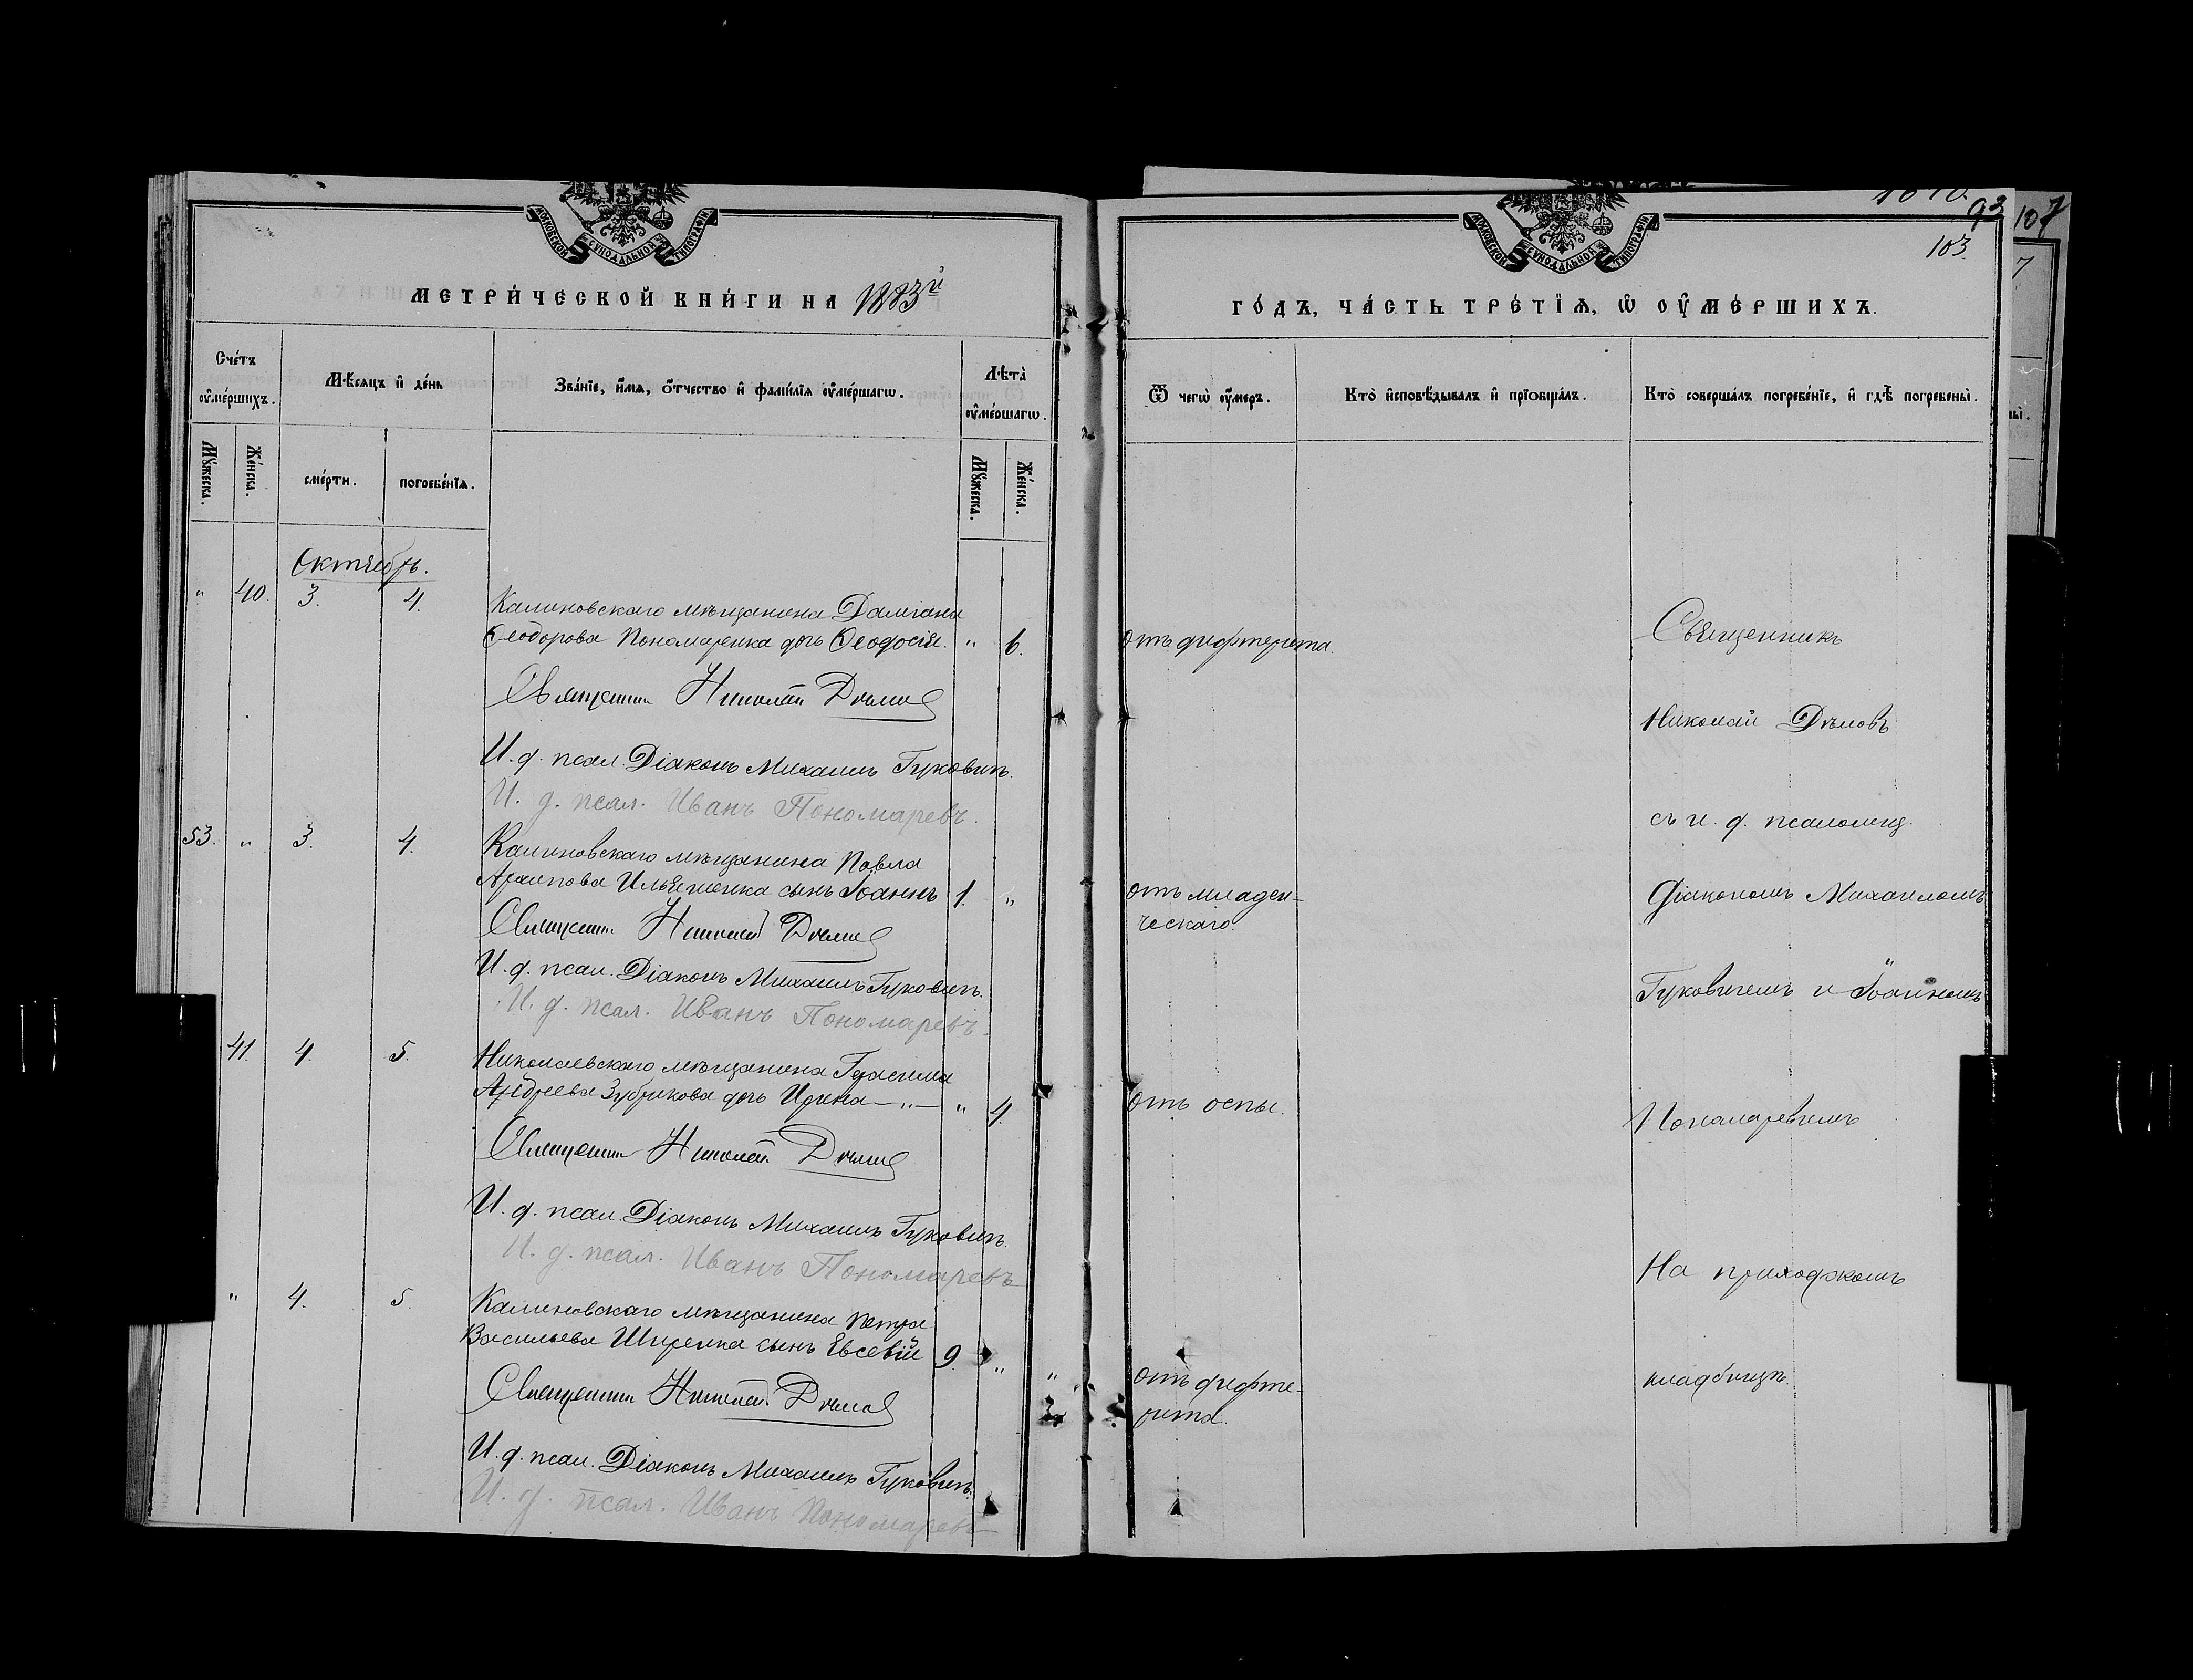 МОСКОВСКОЙ СѴНОДАЛЬНОЙ ТИПОГРАФІИ
МЕТРИ́ЧЕСКОЙ КНИ́ГИ НА 1883й
Сче́тъ ᲂу҆ме́ршихъ.
Мѣ́сяцъ и҆ де́нь
Зва́нїе, и҆́мѧ, ѻ҆́тчество и҆ фами́лїѧ ᲂу҆ме́ршагѡ.
Лѣта̀ ᲂу҆ме́ршагѡ.
Мꙋ́жеска.
Же́нска.
сме́рти.
погребе́нїѧ.
Мꙋ́жеска.
Же́нска.
Октябрь.
" 40. 3. 4. Калиновскаго мѣщанина Даміана
Ѳеодорова Пономаренка дочь Ѳеодосія. " 6.
Священник Николай Дѣмов
И. д. псал. Діаконъ Михаилъ Гуковичъ.
И. д. псал. Иванъ Пономаревъ.
53. " 3. 4. Калиновскаго мѣщанина Павла
Архипова Ильяшенка сынъ Іоаннъ 1. "
Священник Николай Дѣмов
И. д. псал. Діаконъ Михаилъ Гуковичъ.
И. д. псал. Иванъ Пономаревъ.
41. 4. 5. Николаевскаго мѣщанина Герасима
Андреева Зубрикова дочь Ирина — " — " 4.
Священник Николай Дѣмов
И. д. псал. Діаконъ Михаилъ Гуковичъ.
И. д. псал. Иванъ Пономаревъ
" 4. 5. Калиновскаго мѣщанина Петра
Васильева Ширенка сынъ Евсевій 9. "
Священник Николай Дѣмов
И. д. псал. Діаконъ Михаилъ Гуковичъ.
И. д. псал. Иванъ Пономаревъ
93 107
103.
7
МОСКОВСКОЙ СѴНОДАЛЬНОЙ ТИПОГРАФІИ
ГО́ДЪ, ЧА́СТЬ ТРЕ́ТЇѦ, Ѡ҆ ОУ҆МЕ́РШИХЪ.
Ѿ чегѡ̀ ᲂу҆́меръ.
Кто̀ и҆сповѣ́дывалъ и҆ прїобща́лъ.
Кто̀ соверша́лъ погребе́нїе, и҆ гдѣ̀ погребены̀.
отъ дифтерита.
Священникъ
Николай Дѣмовъ
съ и. д. псаломщ.
отъ младен-
ческаго.
Діакономъ Михаиломъ
Гуковичемъ и Іоанномъ
отъ оспы.
Пономаревымъ
На приходскомъ
отъ дифте-
рита.
кладбищѣ.